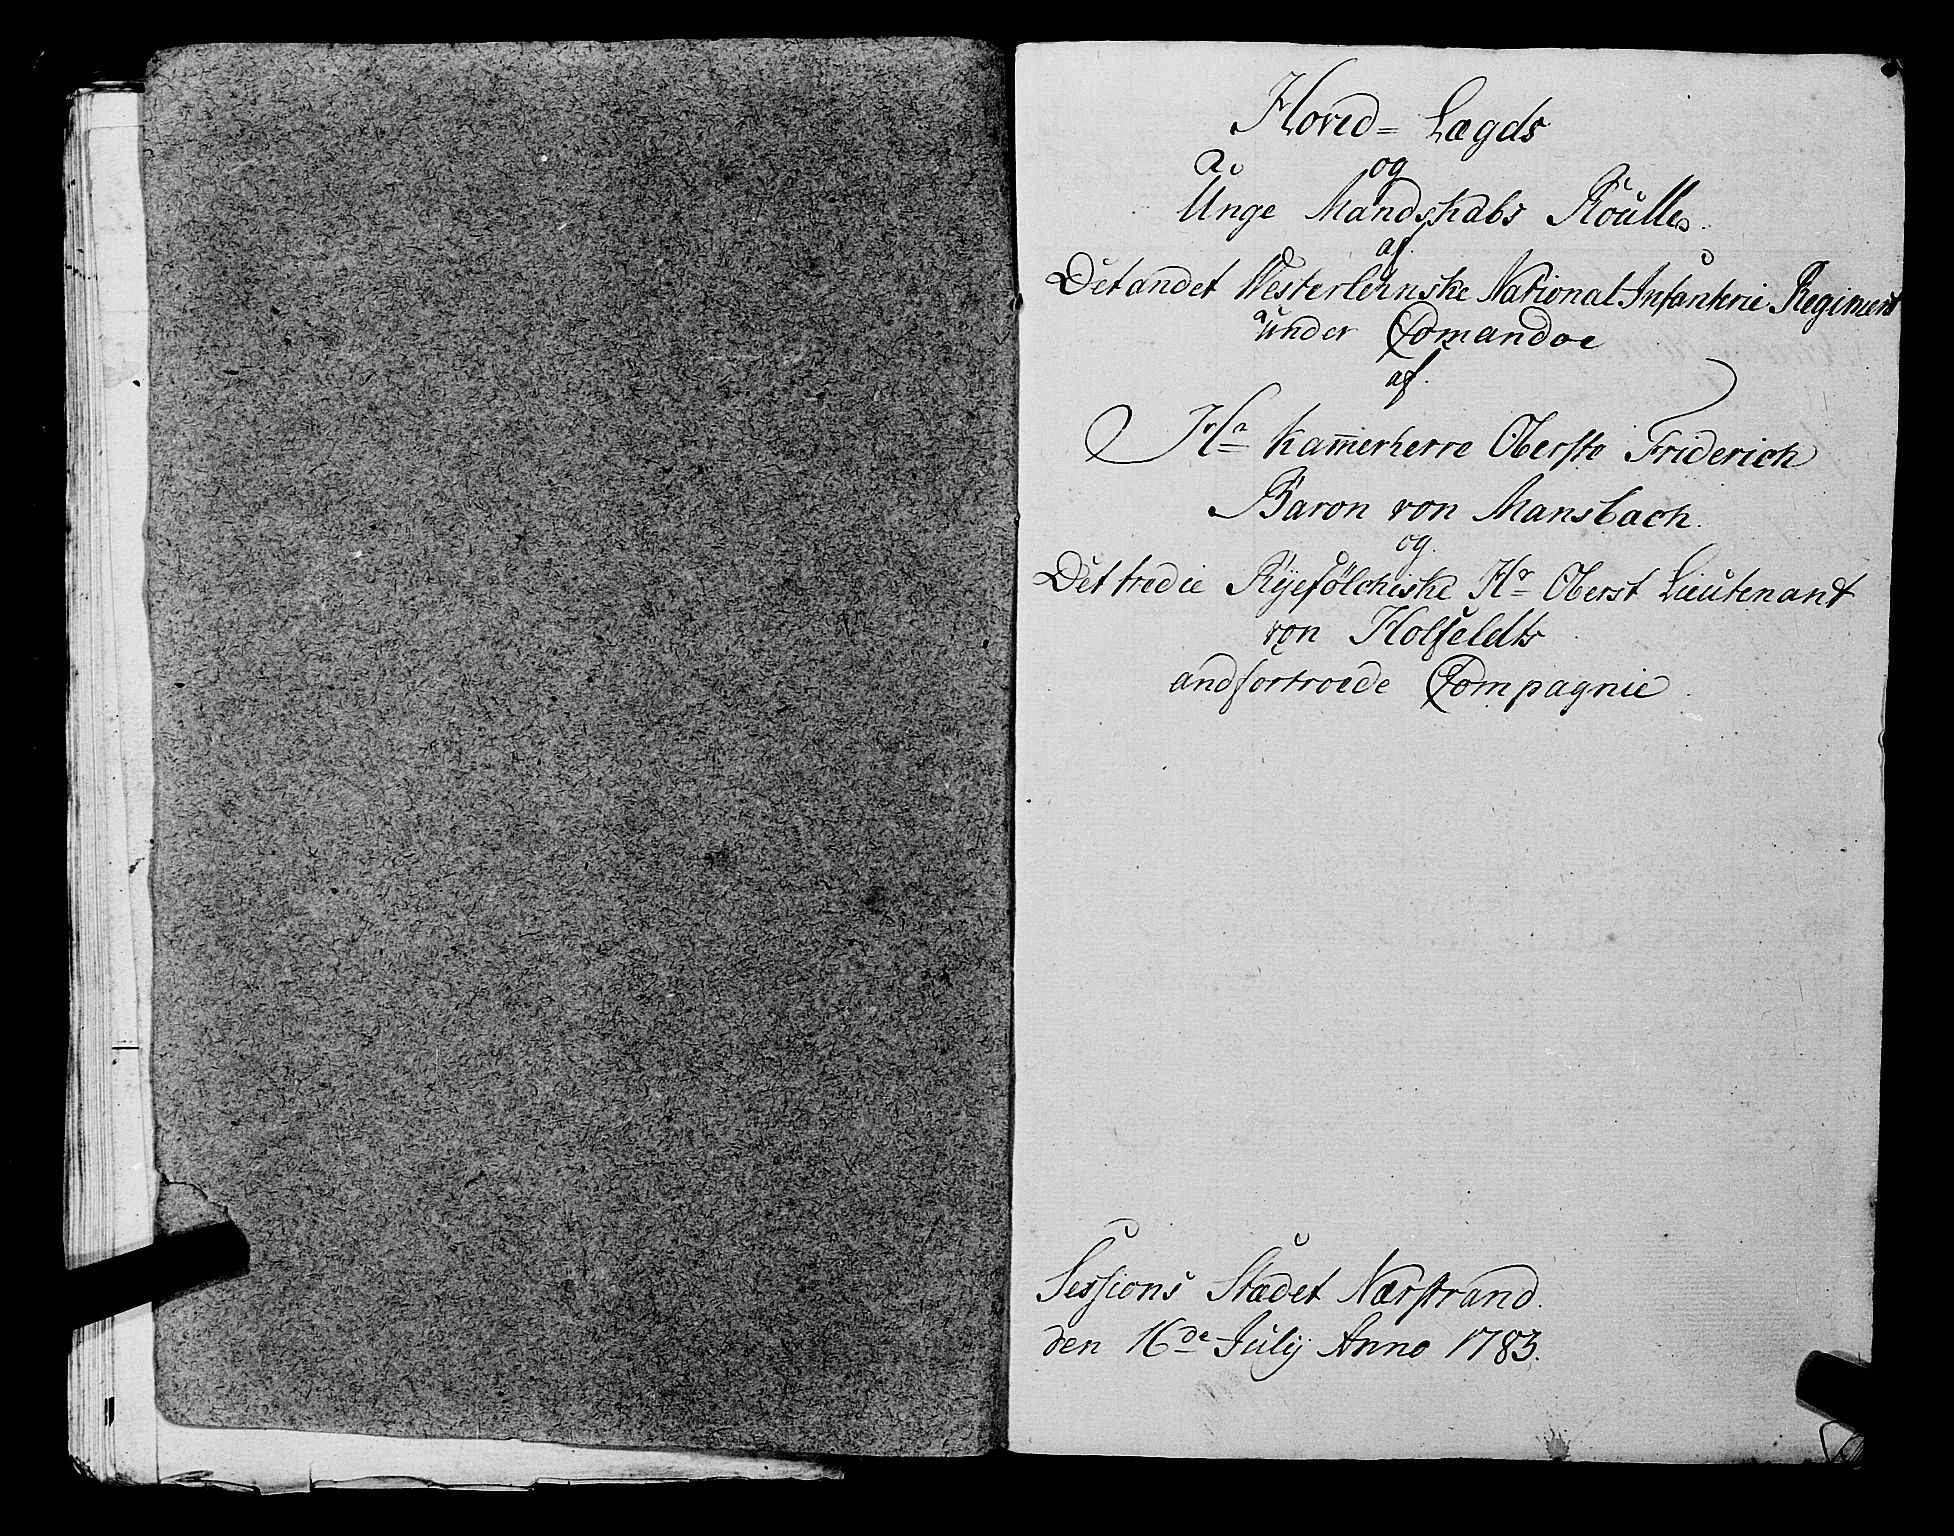 Hoved= Lægds
og
Unge Mandskabs Roulle
af
Det andet Westerleenske National Infanterie Regiment
under Comandoe
af.
Hr Kam̄erherre Oberste Friderich
Baron von Mansbach.
og
Det tredie Ryefølchiske Hr Oberst Lieutenant
von Holfeldts
andfortroede Compagnie
Sessions Stædet Nærstrand.
den 16de July Anno 1783.